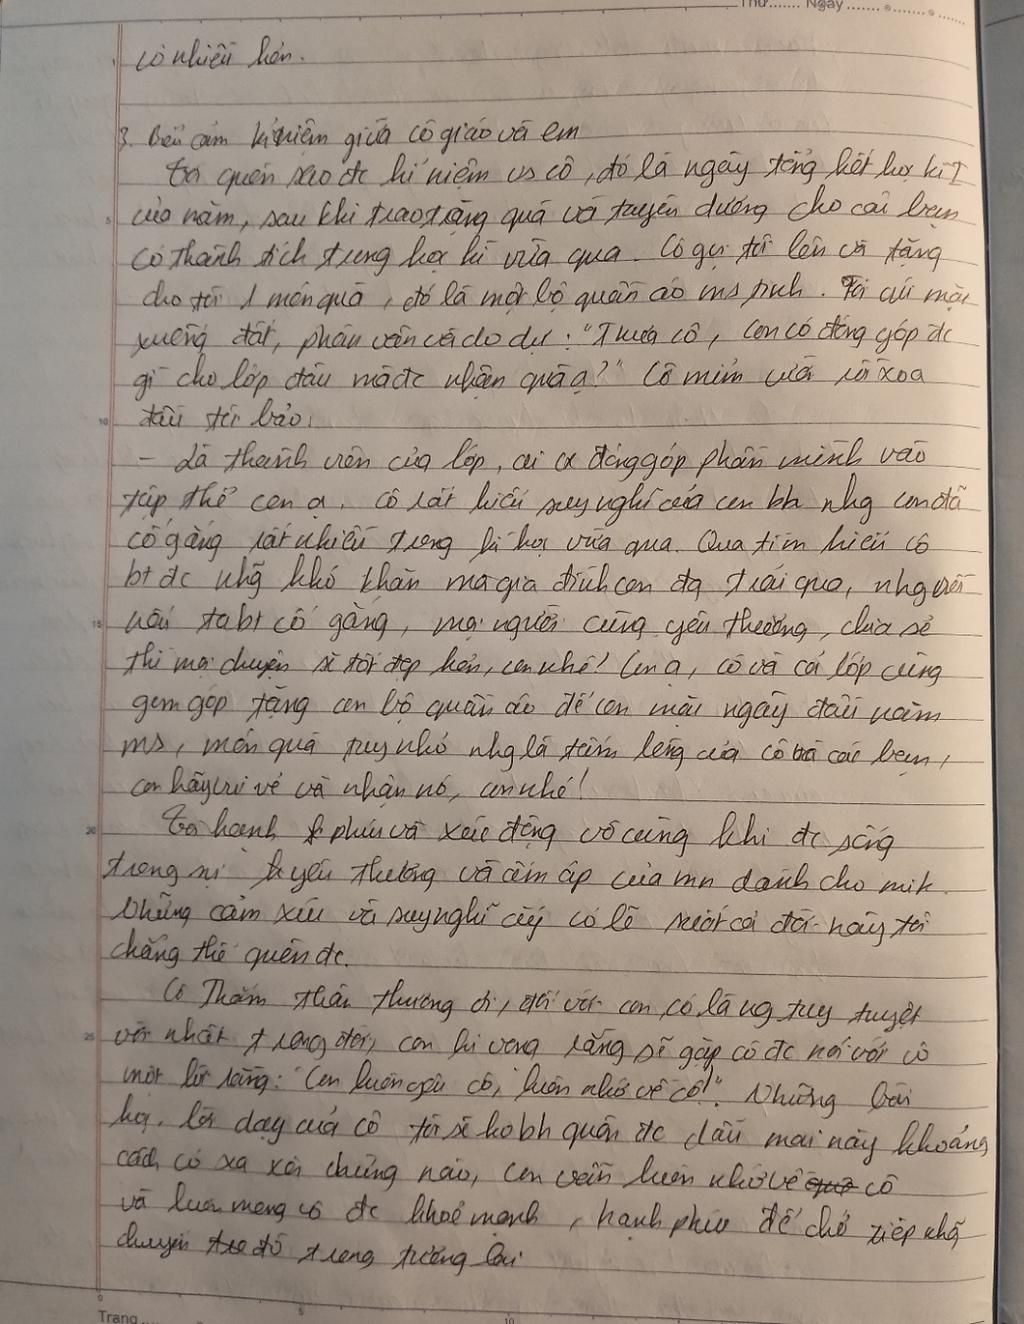 Thứ....... Ngày ....... . ....... .
có nhiều hơn.
3. Biểu cảm kỉ niệm giữa cô giáo và em
Tôi quên sao đc kỉ niệm vs cô, đó là ngày tổng kết học kì I
của năm, sau khi trao tặng quà và tuyên dương cho các bạn
có thành tích trong học kì vừa qua. Cô gọi tôi lên và tặng
cho tôi 1 món quà, đó là một bộ quần áo ms tinh. Tôi cúi mặt
xuống đất, phân vân và do dự: "Thưa cô, con có đóng góp đc
gì cho lớp đâu mà đc nhận quà ạ?" Cô mỉm cười rồi xoa
đầu tôi bảo:
- Là thành viên của lớp, ai cx đóng góp phần mình vào
tập thể con ạ. Cô rất hiểu suy nghĩ của con bh nhg con đã
cố gắng rất nhiều trong kì học vừa qua. Qua tìm hiểu cô
bt đc nhg khó khăn mà gia đình con đã trải qua, nhg
nếu ta bt cố gắng, mọi người cùng yêu thương, chia sẻ
thì mọi chuyện sẽ tốt đẹp hơn, con nhé! Con ạ, cô và cả lớp cùng
gom góp tặng con bộ quần áo để con mặc ngày đầu năm
ms, món quà tuy nhỏ nhg là tấm lòng của cô và các bạn,
con hãy vui vẻ và nhận nó, con nhé!
Tôi hạnh phúc và xúc động vô cùng khi đc sống
trong sự yêu thương và ấm áp của mn dành cho mik.
Những cảm xúc và suy nghĩ ấy có lẽ suốt cả đời này tôi
chẳng thể quên đc.
Cô Thắm thân thương ơi, đối với con cô là ng tuy tuyệt
vời nhất trong đời, con hi vọng rằng sẽ gặp cô đc nói với cô
một lời rằng: "Con luôn yêu cô, luôn nhớ về cô!". Những bài
học, lời dạy của cô tôi sẽ ko bh quên đc dẫu mai này khoảng
cách có xa xôi chừng nào, con vẫn luôn nhớ về cô
và luôn mong cô đc khoẻ mạnh, hạnh phúc để chở tiếp nhg
chuyến đò trong tương lai.
Trang .....